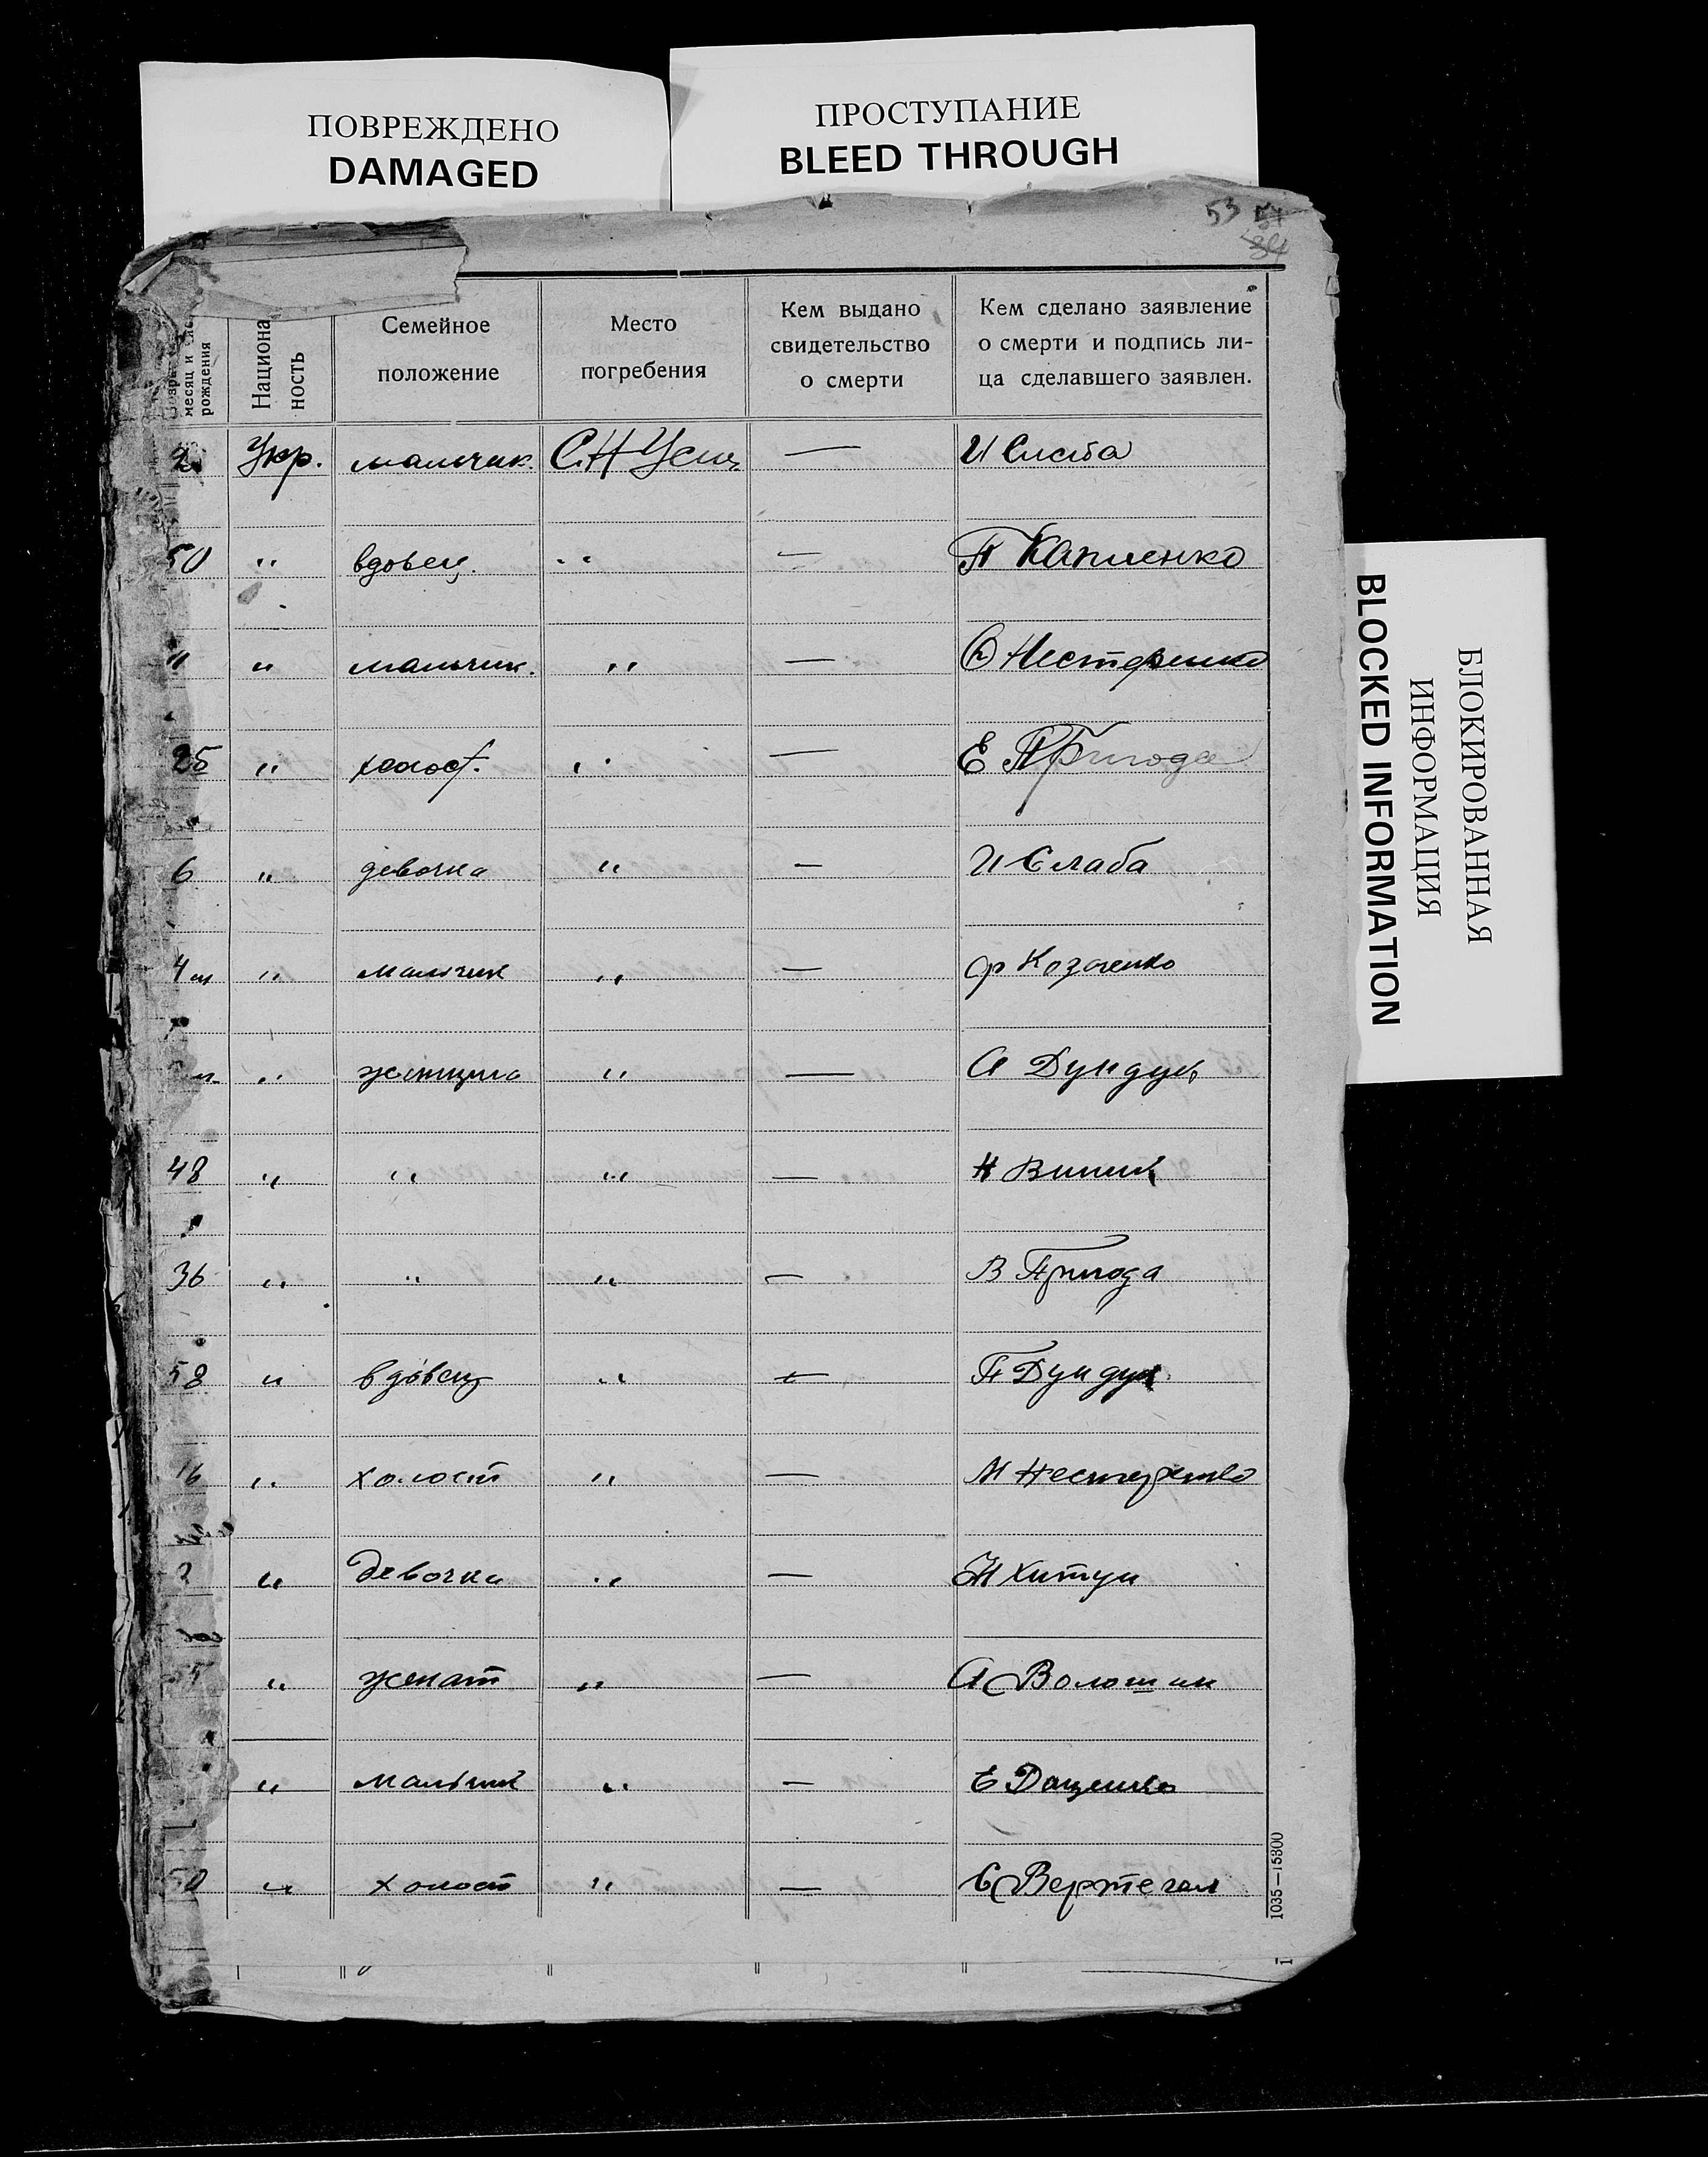 ПОВРЕЖДЕНО
DAMAGED
ПРОСТУПАНИЕ
BLEED THROUGH
53
месяц и
рождения
Национа
ность
Семейное
положение
Место
погребения
Кем выдано
свидетельство
о смерти
Кем сделано заявление
о смерти и подпись ли-
ца сделавшего заявлен.
2 Укр. мальчик. С.Н —
50 " вдовец. " — П
" " мальчик. " — Нестеренко
25 " холост. " — Е Пригода
6 " девочка " — И Слаба
4 м " мальчик " — Ф Козаченко
м. " женщина " — А Дундук
48 " " " — Н Винник
36 " " " — В Пригода
58 " вдовец " — П Дундук
16 " холост " — М Нестеренко
2 " девочка " — Хитун
55 " женат " — А Волошин
" мальчик " — Е Даценко
50 " холост " — Є Вертегел
1035—15300
БЛОКИРОВАННАЯ
ИНФОРМАЦИЯ
BLOCKED INFORMATION